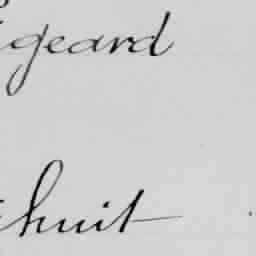 geard
huit